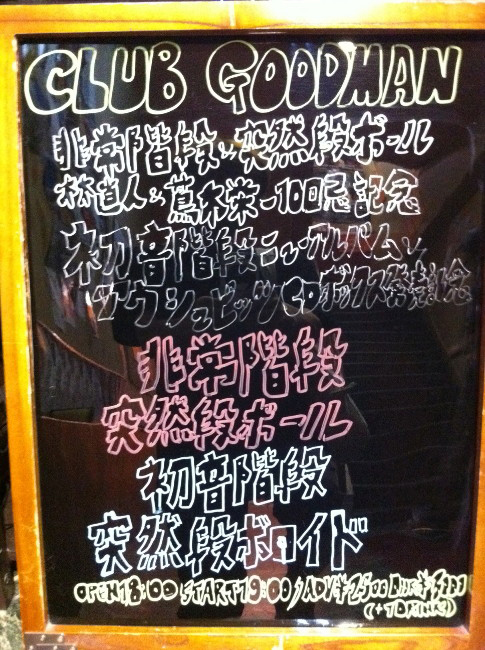 CLUB GOODMAN
非常階段、突然段ボール
林直人&蔦木栄一10回忌記念
初音階段ニューアルバム、
アウシュビッツCDボックス発売記念
非常階段
突然段ボール
初音階段
突然段ボロイド
OPEN18:00 START19:00/ADV¥2500
(+1DRINK)